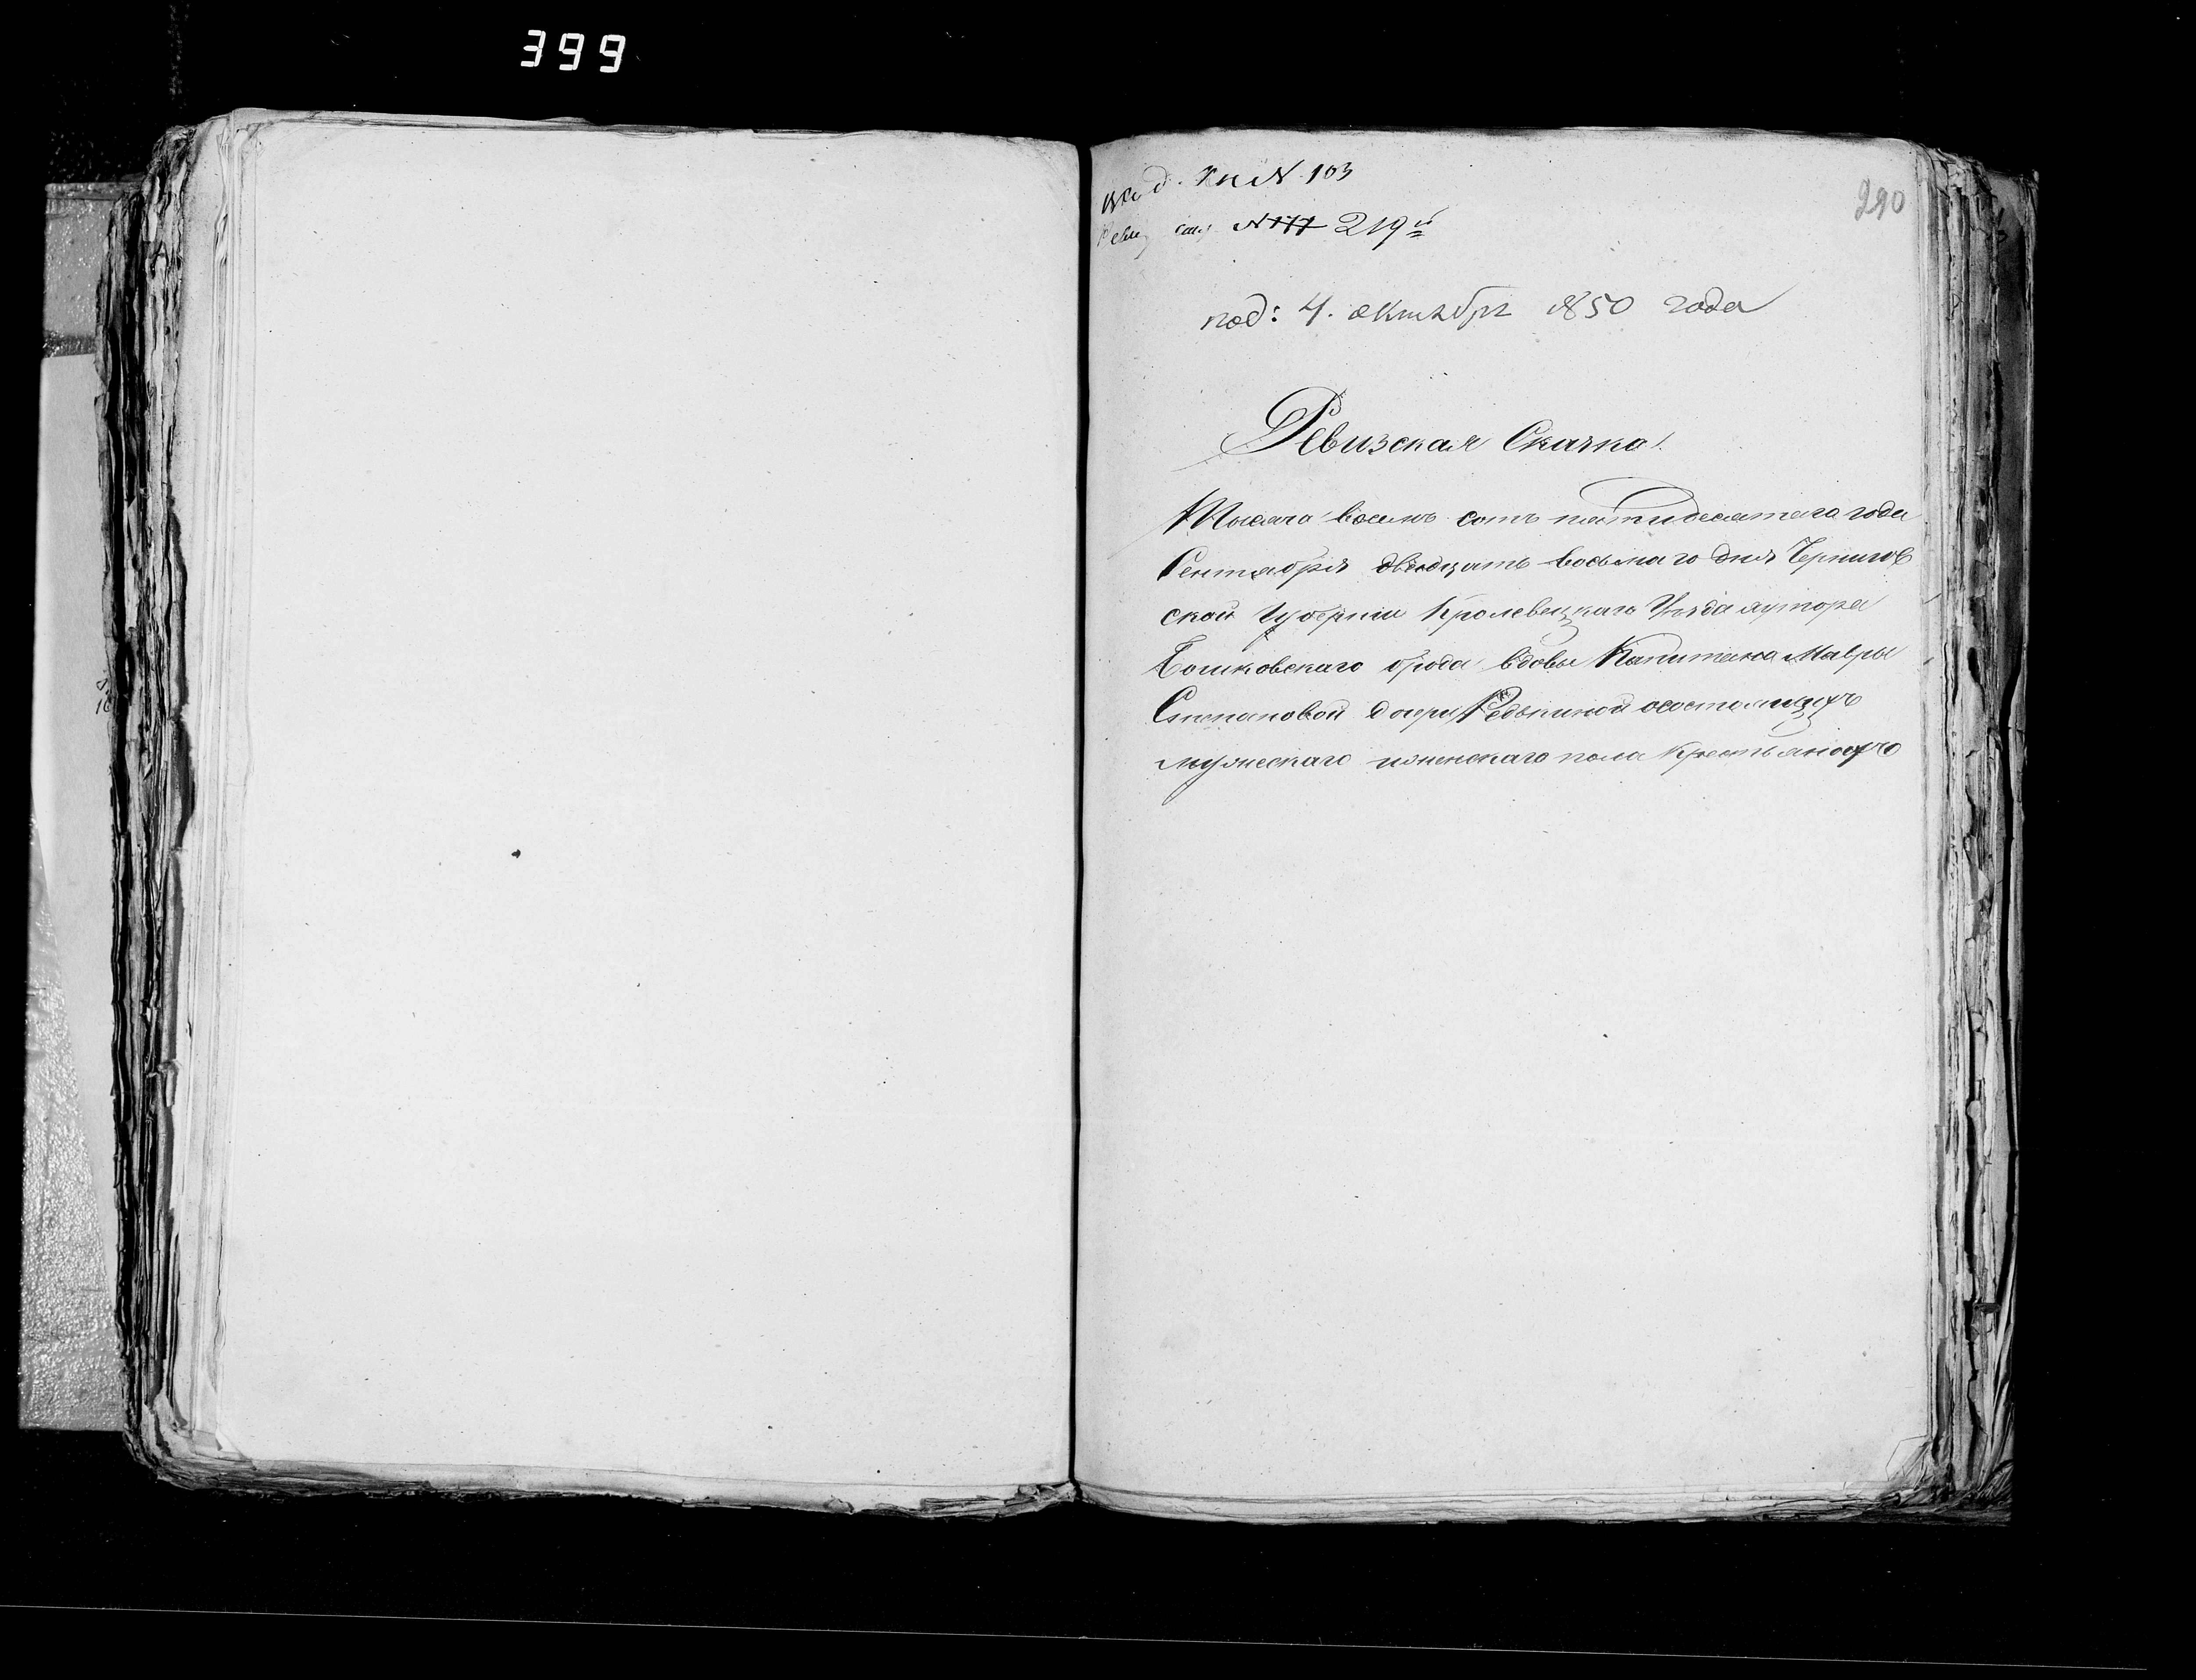 399
вход. Кн № 103
290
Ревиз. сказ. №177 219й
под: 4. октября 1850 года
Ревизская Сказка!
Тысяча восемь сотъ пятидесятаго года
Сентября двадцать восьмаго дня Чернигов
ской Губерніи Кролевецкаго Уѣзда хутора
вдовы Капитана Мавры
Степановой дочери Редькиной осостоящихъ
мужескаго иженскаго пола Крестьянахъ